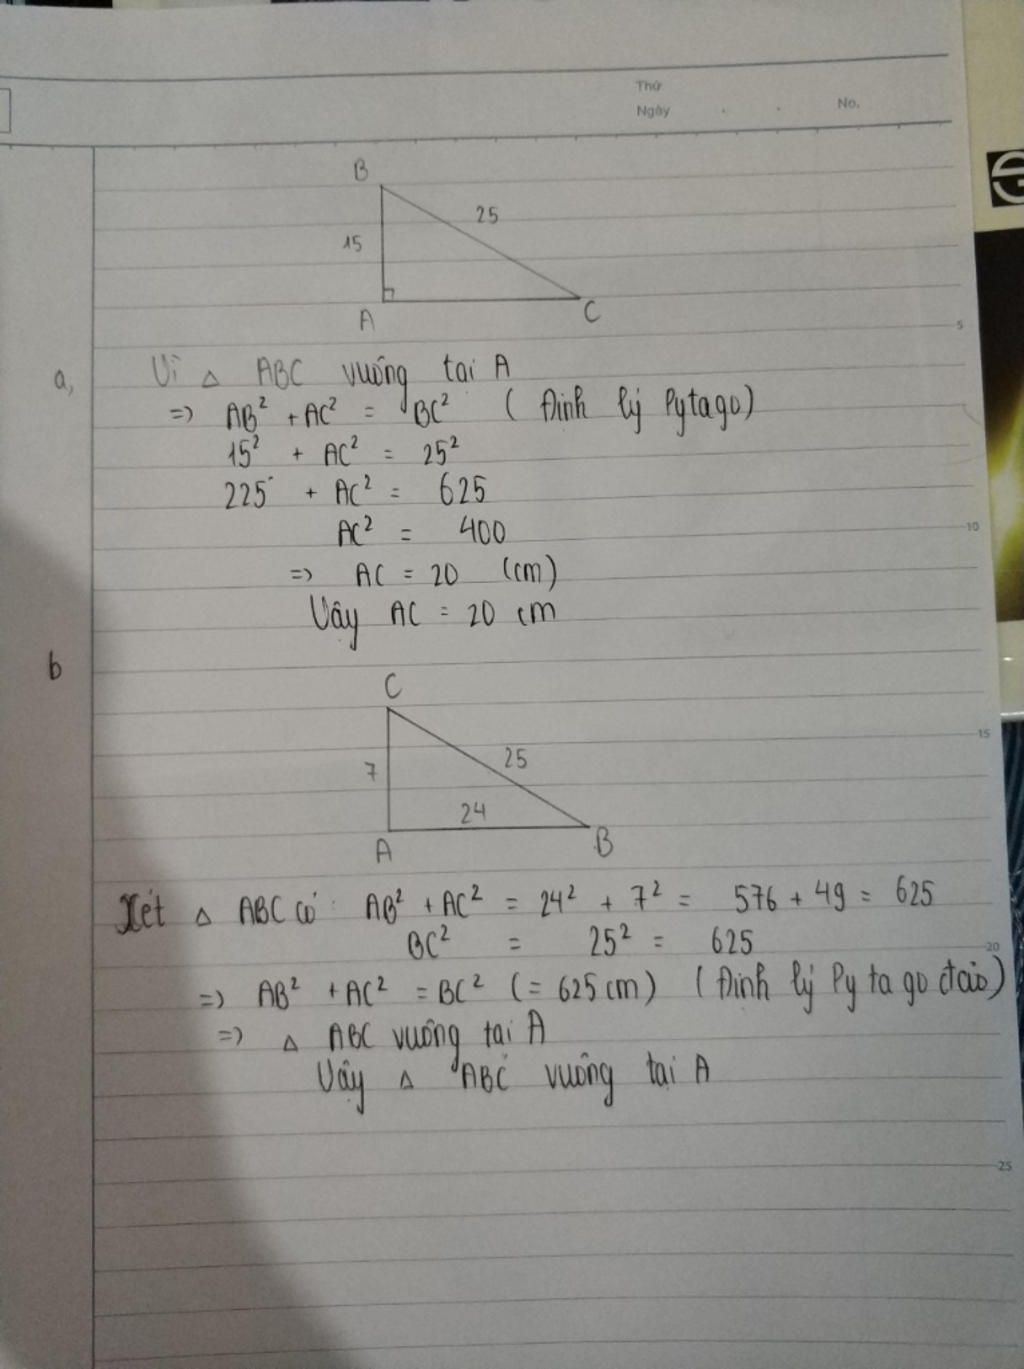 Thứ
Ngày . . No.
B
25
15
A
C
5
a, Vì △ ABC vuông tại A
=> AB² + AC² = BC² ( Định lý Pytago)
15² + AC² = 25²
225 + AC² = 625
AC² = 400
10
=> AC = 20 (cm)
Vậy AC = 20 cm
b
C
15
7
25
24
A
B
Xét △ ABC có : AB² + AC² = 24² + 7² = 576 + 49 = 625
BC² = 25² = 625
20
=> AB² + AC² = BC² (= 625 cm) ( Định lý Py ta go đảo)
=> △ ABC vuông tại A
Vậy △ ABC vuông tại A
25